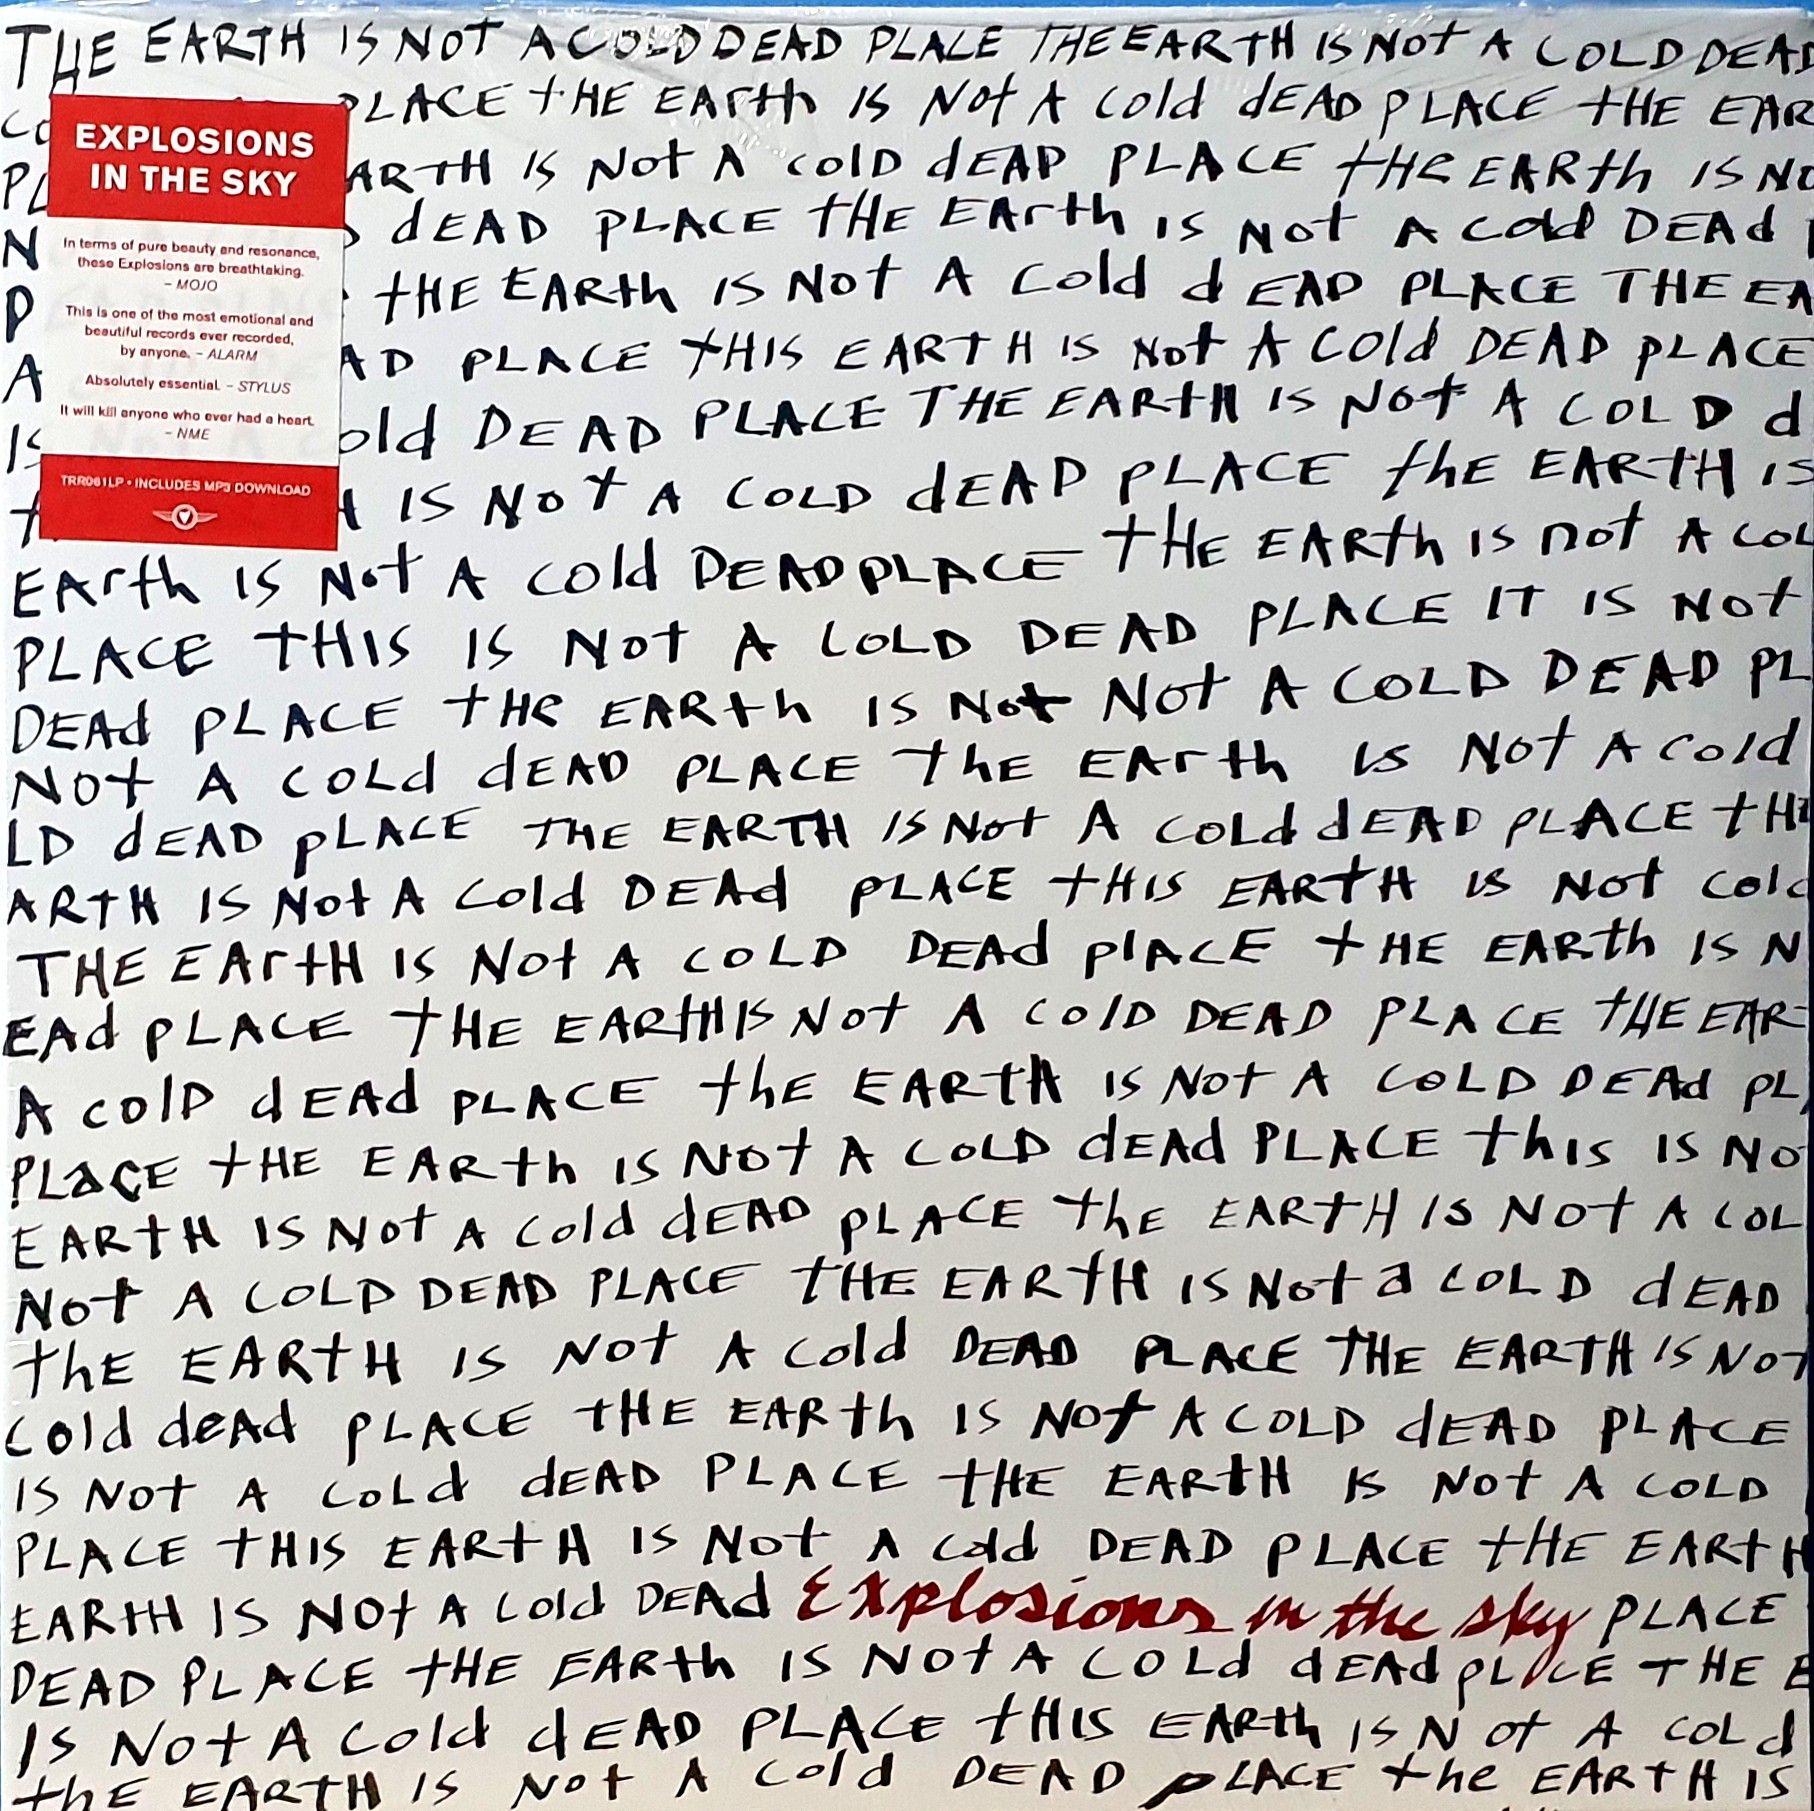 THE EARTH IS NOT A COLD DEAD PLACE THE EARTH IS NOT A COLD DEAD
PLACE tHE EArth IS Not A Cold dEAD PLACE tHE EAR
EXPLOSIONS
IN THE SKY
In terms of pure beauty and resonance,
these Explosions are breathtaking.
– MOJO
This is one of the most emotional and
beautiful records ever recorded,
by anyone. – ALARM
Absolutely essential. – STYLUS
It will kill anyone who ever had a heart.
– NME
TRR061LP • INCLUDES MP3 DOWNLOAD
PL ARTH IS Not A COLD dEAD PLACE tHe EARth IS NO
N dEAD PLACE tHE EArth IS Not A Cold DEAd
P tHE EARth IS Not A Cold dEAD PLACE THE EA
A AD PLACE tHIS EARTH IS Not A COld DEAD pLACE
IS old DEAD PLACE THE EARtH IS Not A COLD d
t H IS Not A COLD dEAD PLACE thE EARTH IS
EArth IS Not A Cold DEAD PLACE tHE EARth IS not A COL
PLACE tHIS IS Not A COLD DEAD PLACE IT IS Not
DEAd PLACE tHe EARth IS Not Not A COLD DEAD PL
Not A COLd dEAD PLACE thE EArth IS Not A Cold
LD dEAD pLACE THE EARTH IS Not A COLd dEAD PLACE tHE
ARtH IS Not A Cold DEAd PLACE tHIS EARtH IS Not Cold
THE EArtH IS Not A COLD DEAd plACE tHE EARth IS N
EAd PLACE tHE EARtH IS Not A ColD DEAD PLACE tHE EAR
A colD dEAd PLACE thE EARtH IS Not A COLD DEAd PL
PLaCE tHE EARth IS Not A COLD dEAd PLACE thIS IS NO
EARtH IS Not A Cold dEAD pLACE thE EARtH IS Not A COL
Not A COLD DEAD PLACE tHE EARtH IS Not a COLD dEAD
thE EARtH IS Not A Cold DEAD PLACE THE EARTH IS NOT
Cold deAd PLACE tHE EARth IS Not A COLD dEAD PLACE
IS Not A CoLd dEAD PLACE tHE EARtH IS Not A COLD
PLACE tHIS EARtH IS Not A Cold DEAD PLACE tHE EARtH
EARtH IS NOt A Cold DEAd Explosions in the sky PLACE
DEAD PLACE tHE EARth IS NOt A COLd dEAd pLACE THE E
IS Not A Cold dEAD PLACE tHIS EARth IS Not A COLd
thE EARTH IS Not A Cold DEAD pLACE the EARtH IS